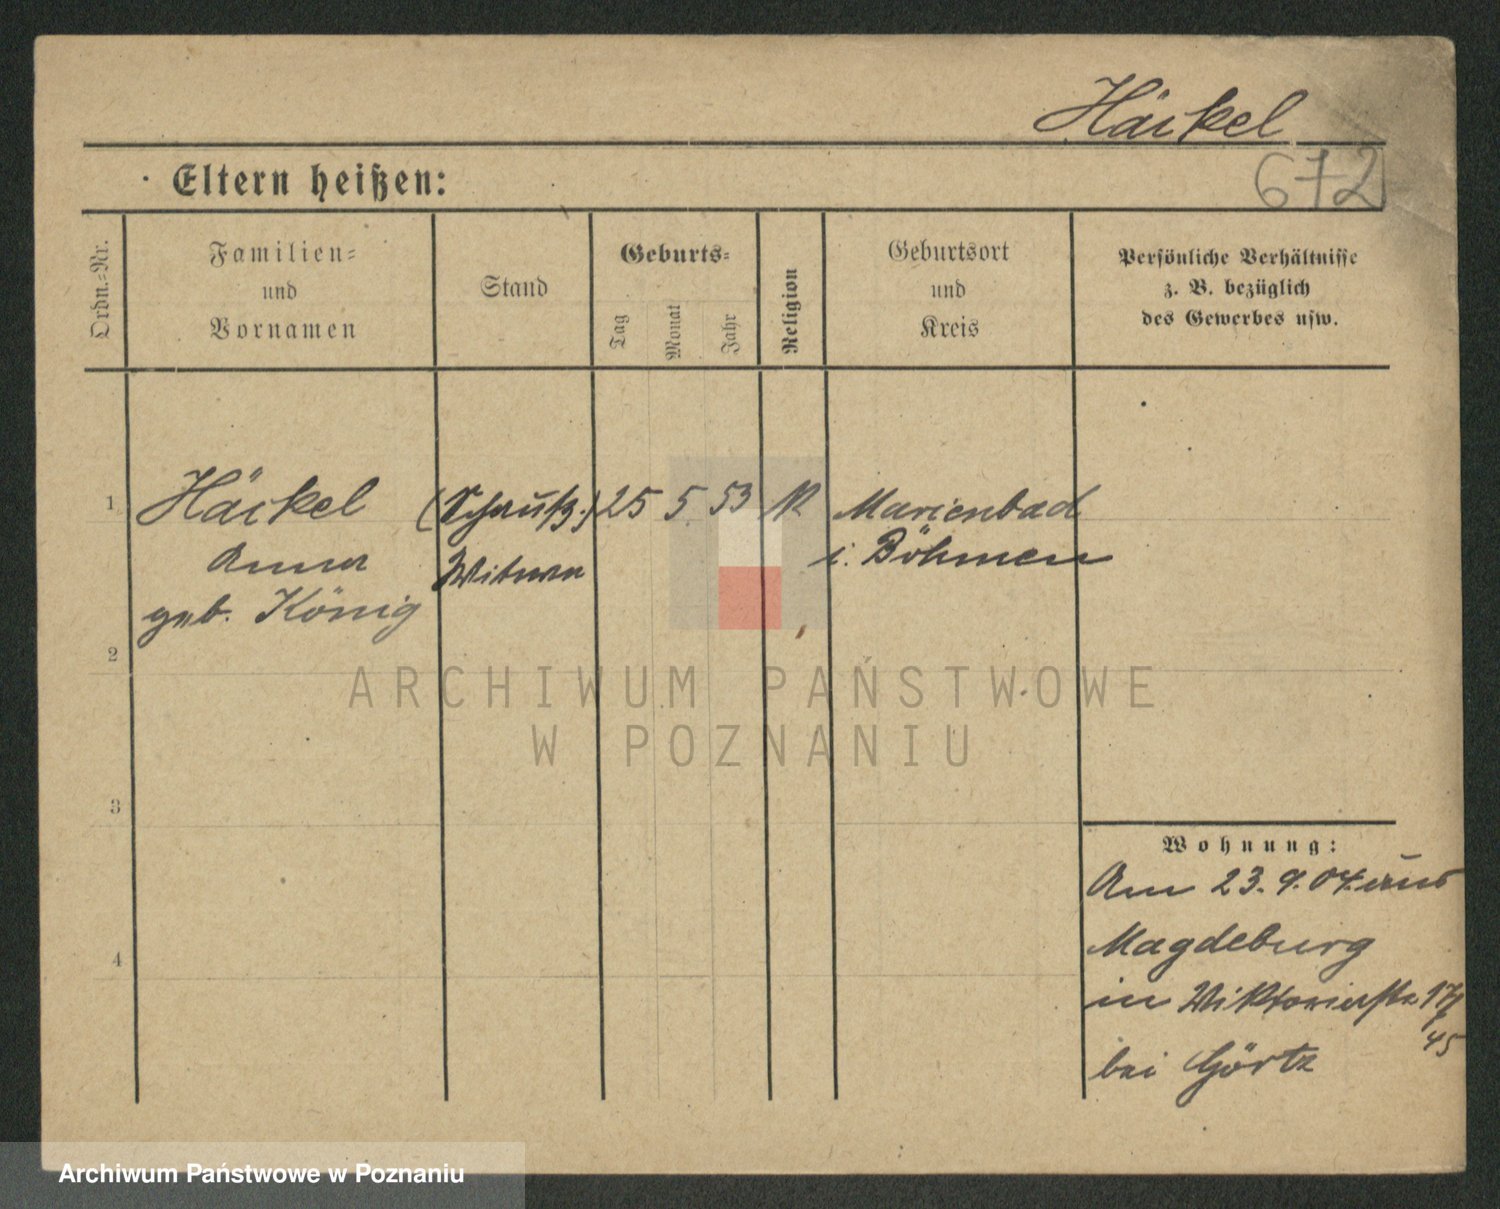 Häckel
Eltern heißen:
672
Ordn.-Nr.
Familien-
und
Vornamen
Stand
Geburts-
Tag
Monat
Jahr
Religion
Geburtsort
und
Kreis
Persönliche Verhältnisse
z. B. bezüglich
des Gewerbes usw.
1
Häckel
25 5 53
Marienbad
Anna
Witwe
i. Böhmen
geb. König
2
ARCHIWUM PAŃSTWOWE
W POZNANIU
3
Wohnung:
Am 23. 9. 04. aus
Magdeburg
4
in Viktoriastr. 17
45
bei Görtz
Archiwum Państwowe w Poznaniu